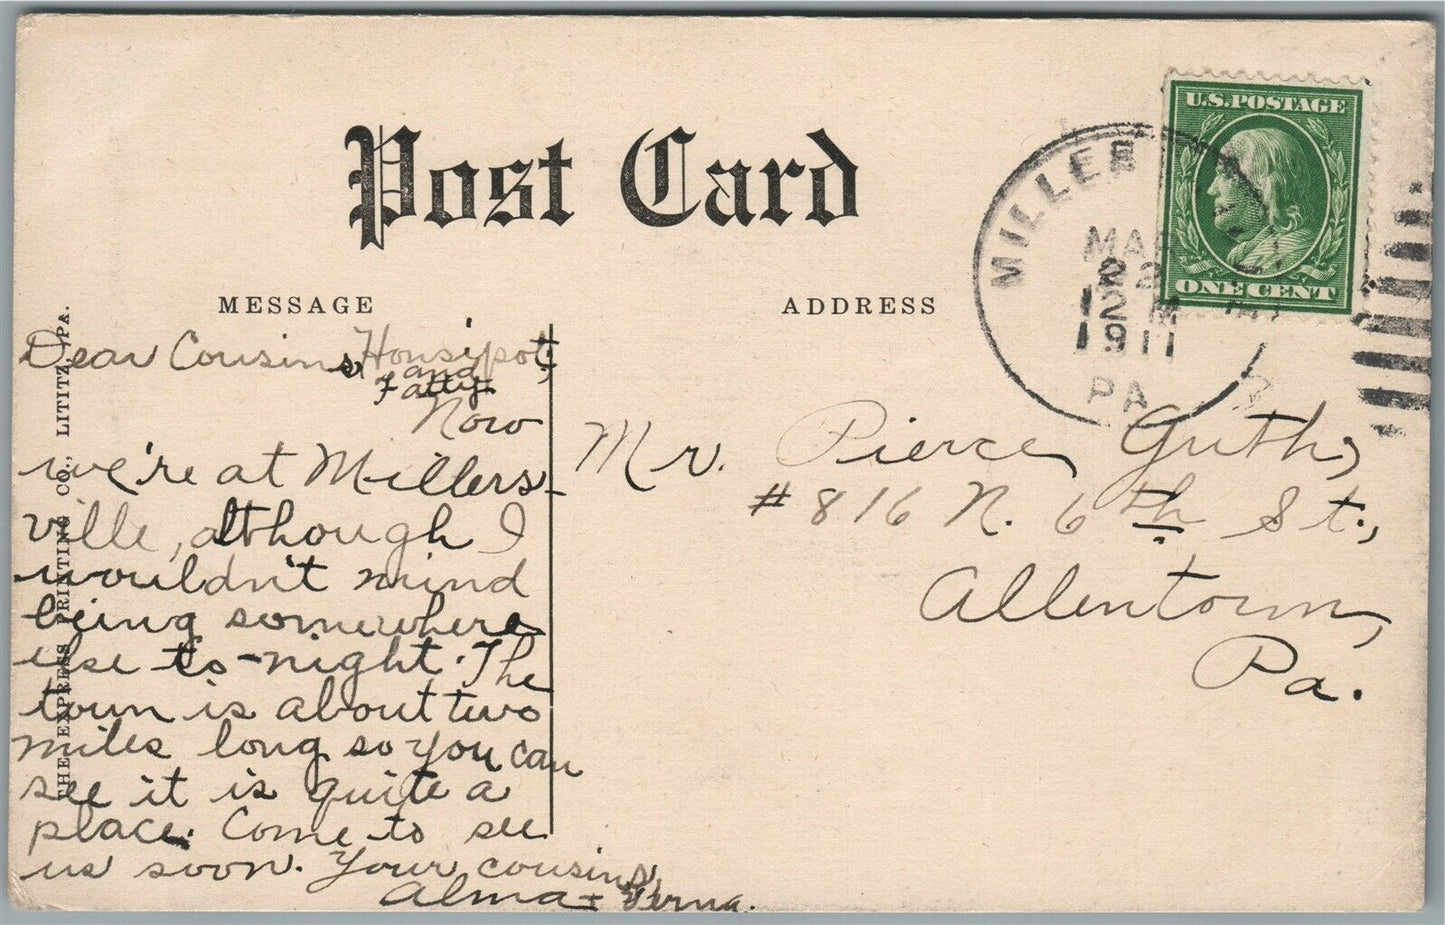 Post Card
MESSAGE
ADDRESS
U.S. POSTAGE
ONE CENT
MILLER
MAR
22
12 M
1911
PA
THE EXPRESS PRINTING CO., LITITZ, PA.
Dear Cousins, Housipot,
and
Fatty
Now
we're at Millers-
ville, although I
wouldn't mind
being somewhere
else to-night. The
town is about two
miles long so you can
see it is quite a
place. Come to see
us soon. Your cousins,
Alma + Verna.
Mr. Pierce Guth,
#816 N. 6th St.,
Allentown,
Pa.